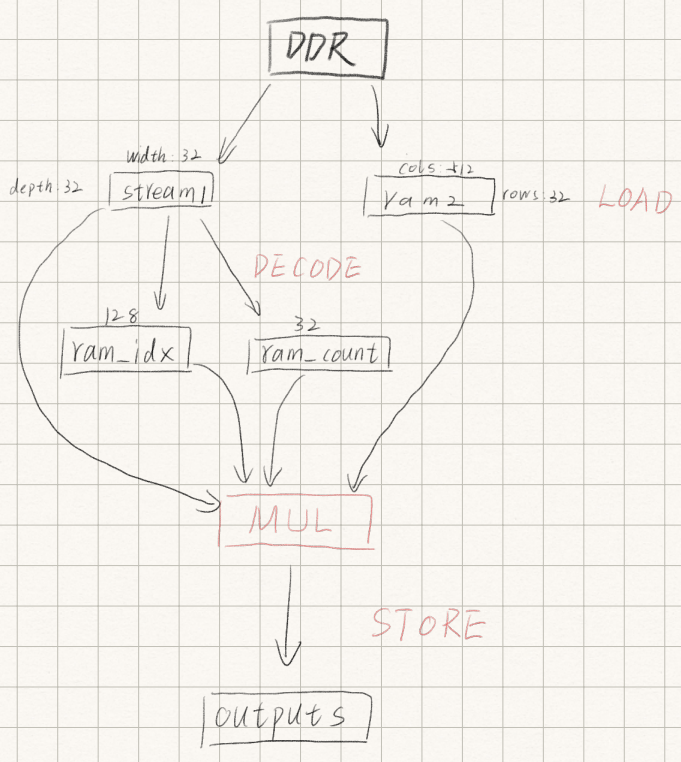 DDR
width: 32
depth: 32
stream1
cols:
ram2
rows: 32
LOAD
DECODE
128
ram_idx
32
ram_count
MUL
STORE
outputs